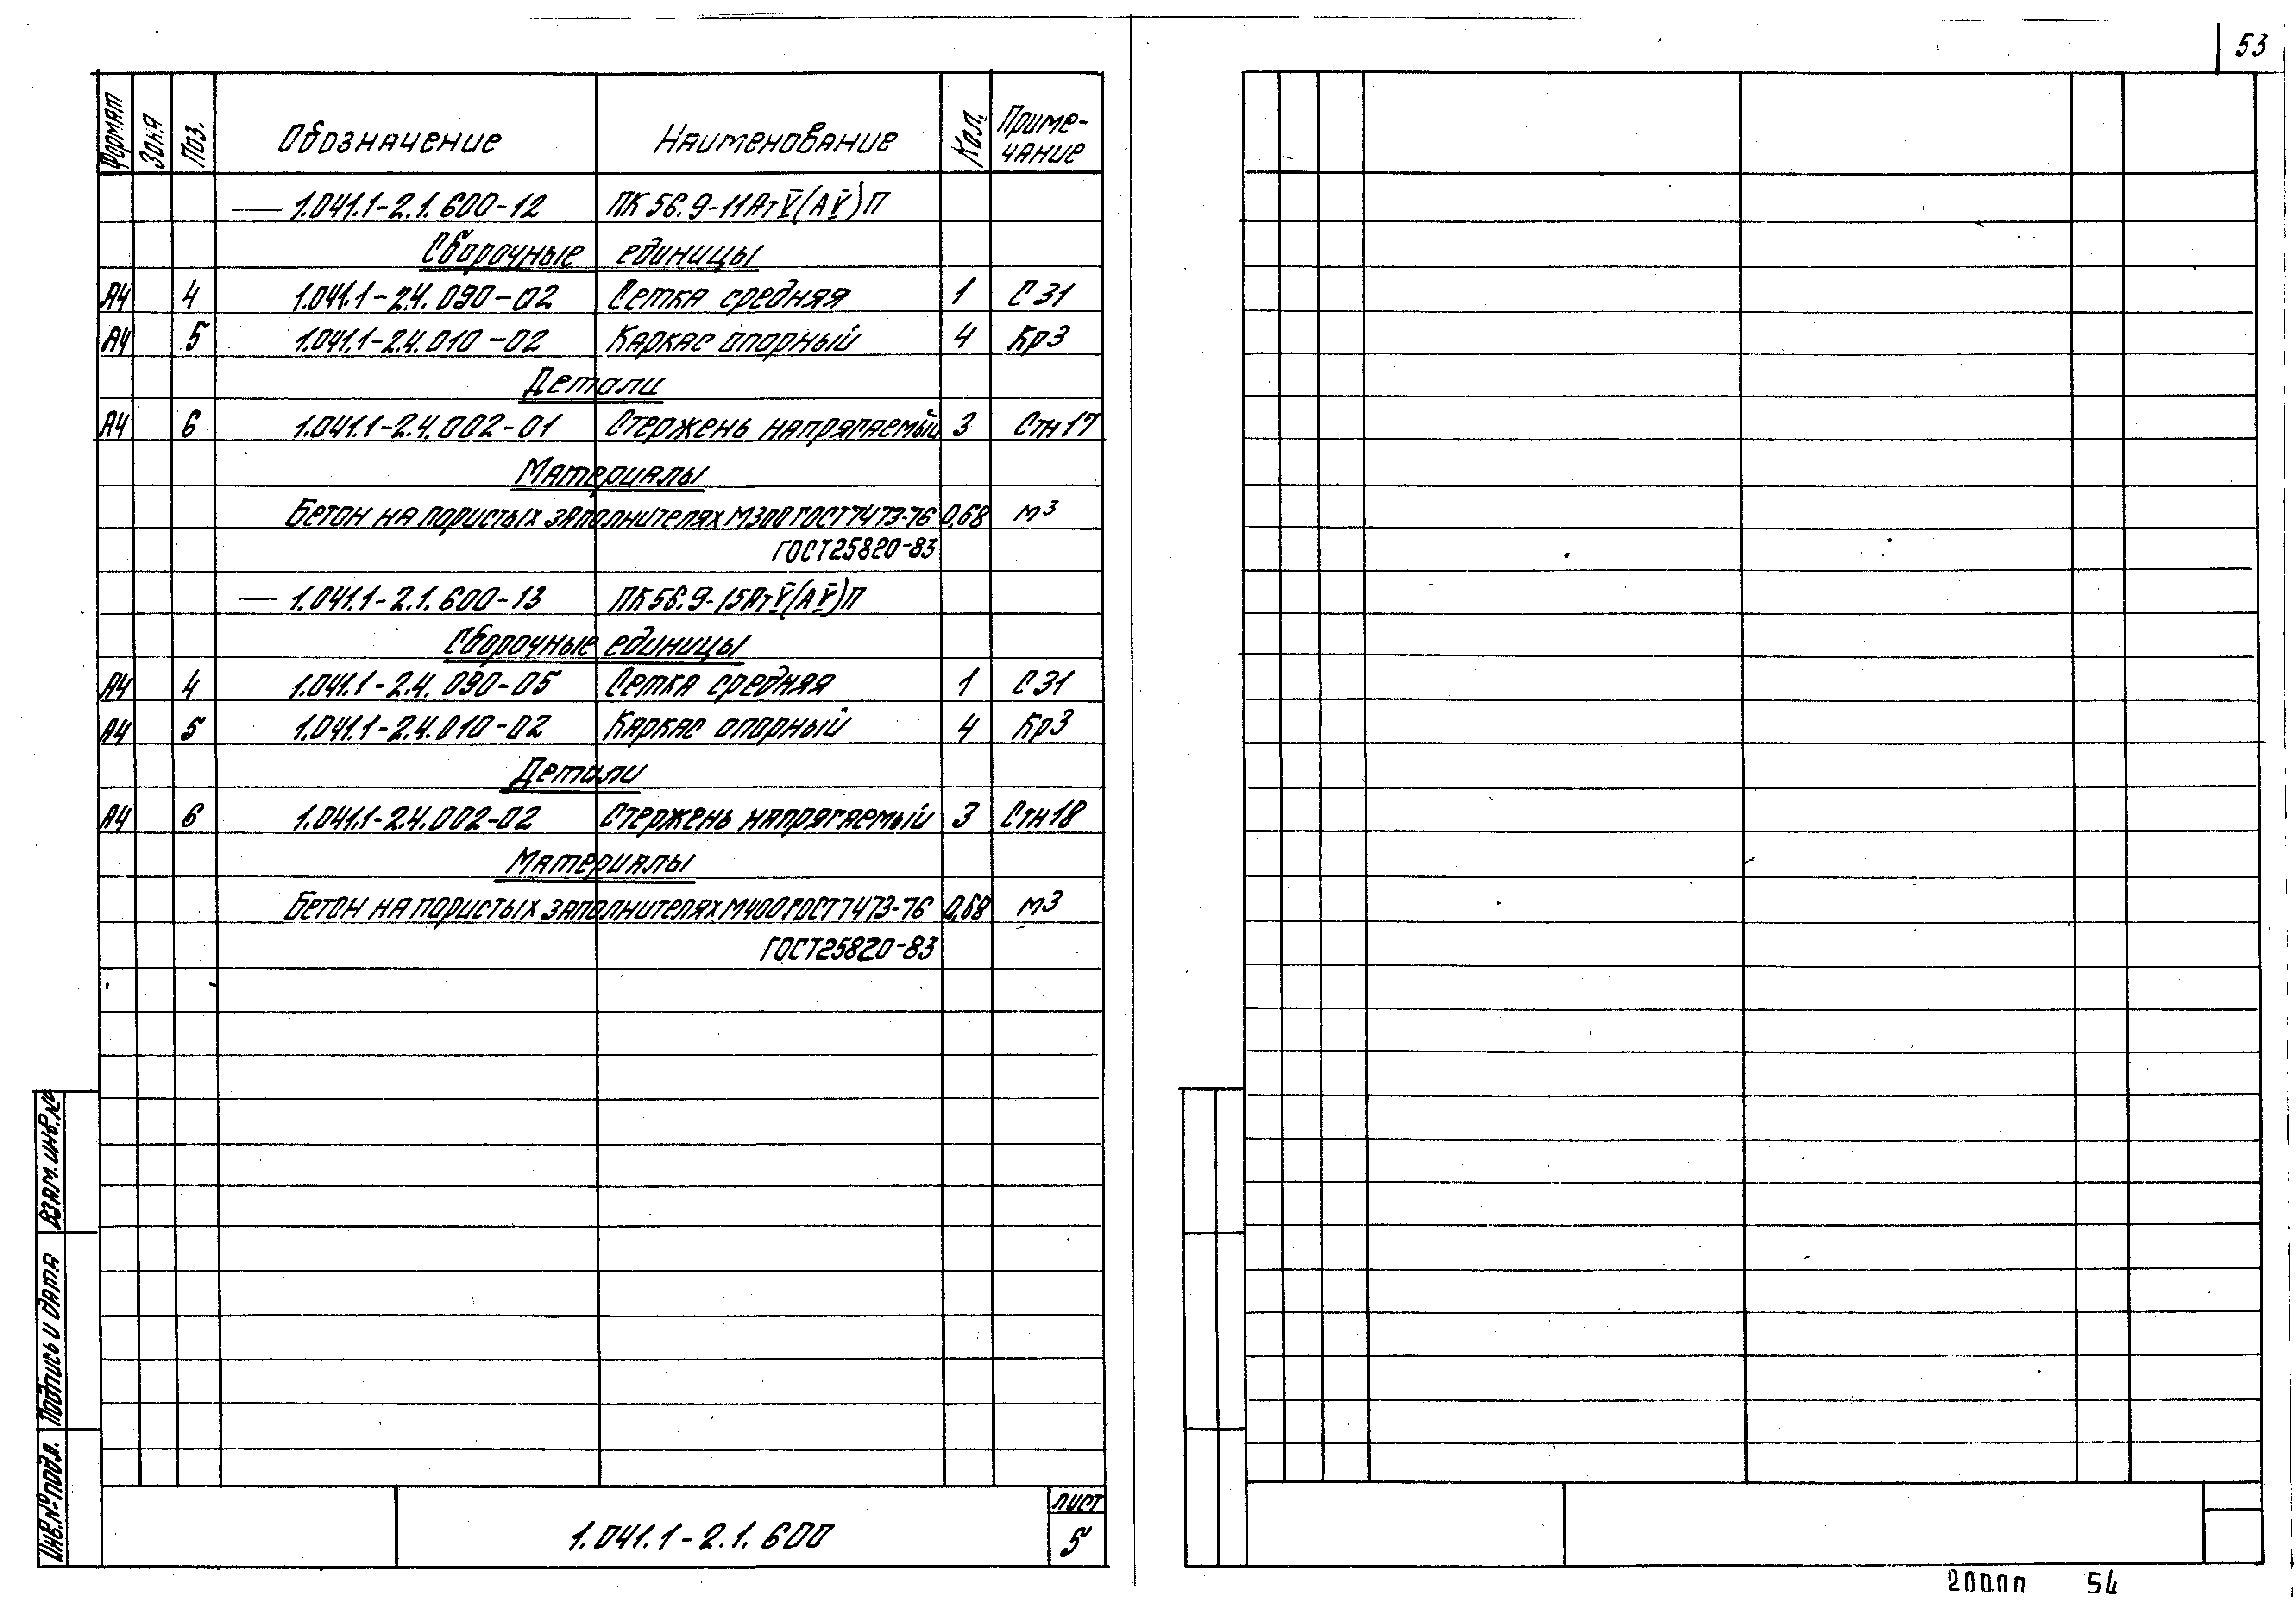 53
Формат Зона Поз. Обозначение Наименование Кол. Приме-
чание
— 1.041.1-2.1.600-12 ПК 56.9-11АтV(АV)П
Сборочные единицы
А4 4 1.041.1-2.4.090-02 Сетка средняя 1 С31
А4 5 1.041.1-2.4.010-02 Каркас опорный 4 Кр3
Детали
А4 6 1.041.1-2.4.002-01 Стержень напрягаемый 3 Стн17
Материалы
Бетон на пористых заполнителях М300 ГОСТ7473-76 0,68 м3
ГОСТ25820-83
— 1.041.1-2.1.600-13 ПК56.9-15АтV(АV)П
Сборочные единицы
А4 4 1.041.1-2.4.090-05 Сетка средняя 1 С31
А4 5 1.041.1-2.4.010-02 Каркас опорный 4 Кр3
Детали
А4 6 1.041.1-2.4.002-02 Стержень напрягаемый 3 Стн18
Материалы
Бетон на пористых заполнителях М400 ГОСТ7473-76 0,68 м3
ГОСТ25820-83
Взам. инв. №
Подпись и дата
Инв. № подл.
1.041.1-2.1.600
лист
5
54